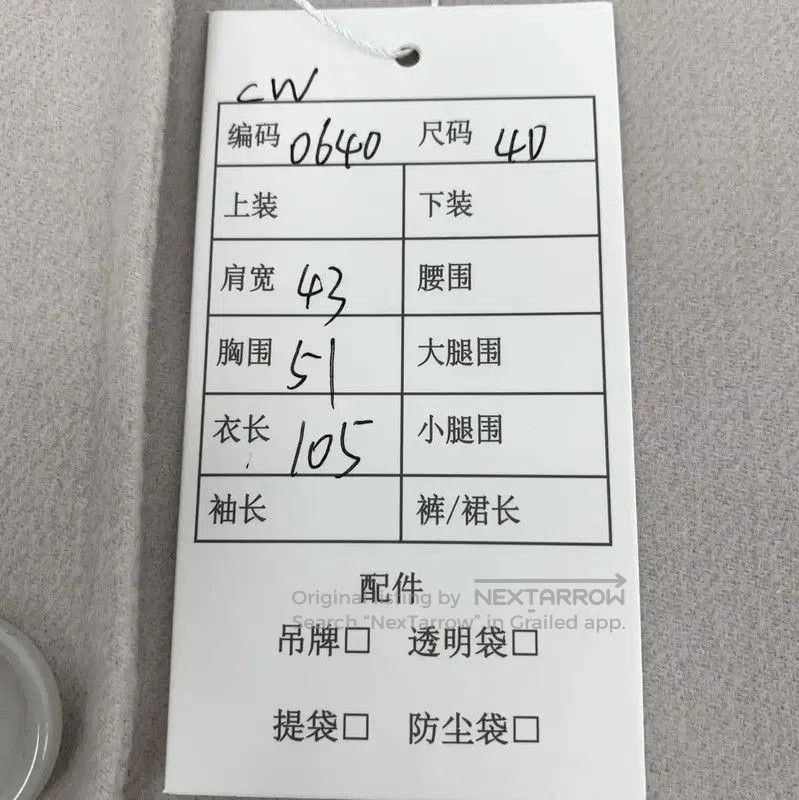 CW
编码 0640 尺码 40
上装 下装
肩宽 43 腰围
胸围 51 大腿围
衣长 105 小腿围
袖长 裤/裙长
配件
Original listing by NEXTARROW
Search "NexTarrow" in Grailed app.
吊牌□ 透明袋□
提袋□ 防尘袋□